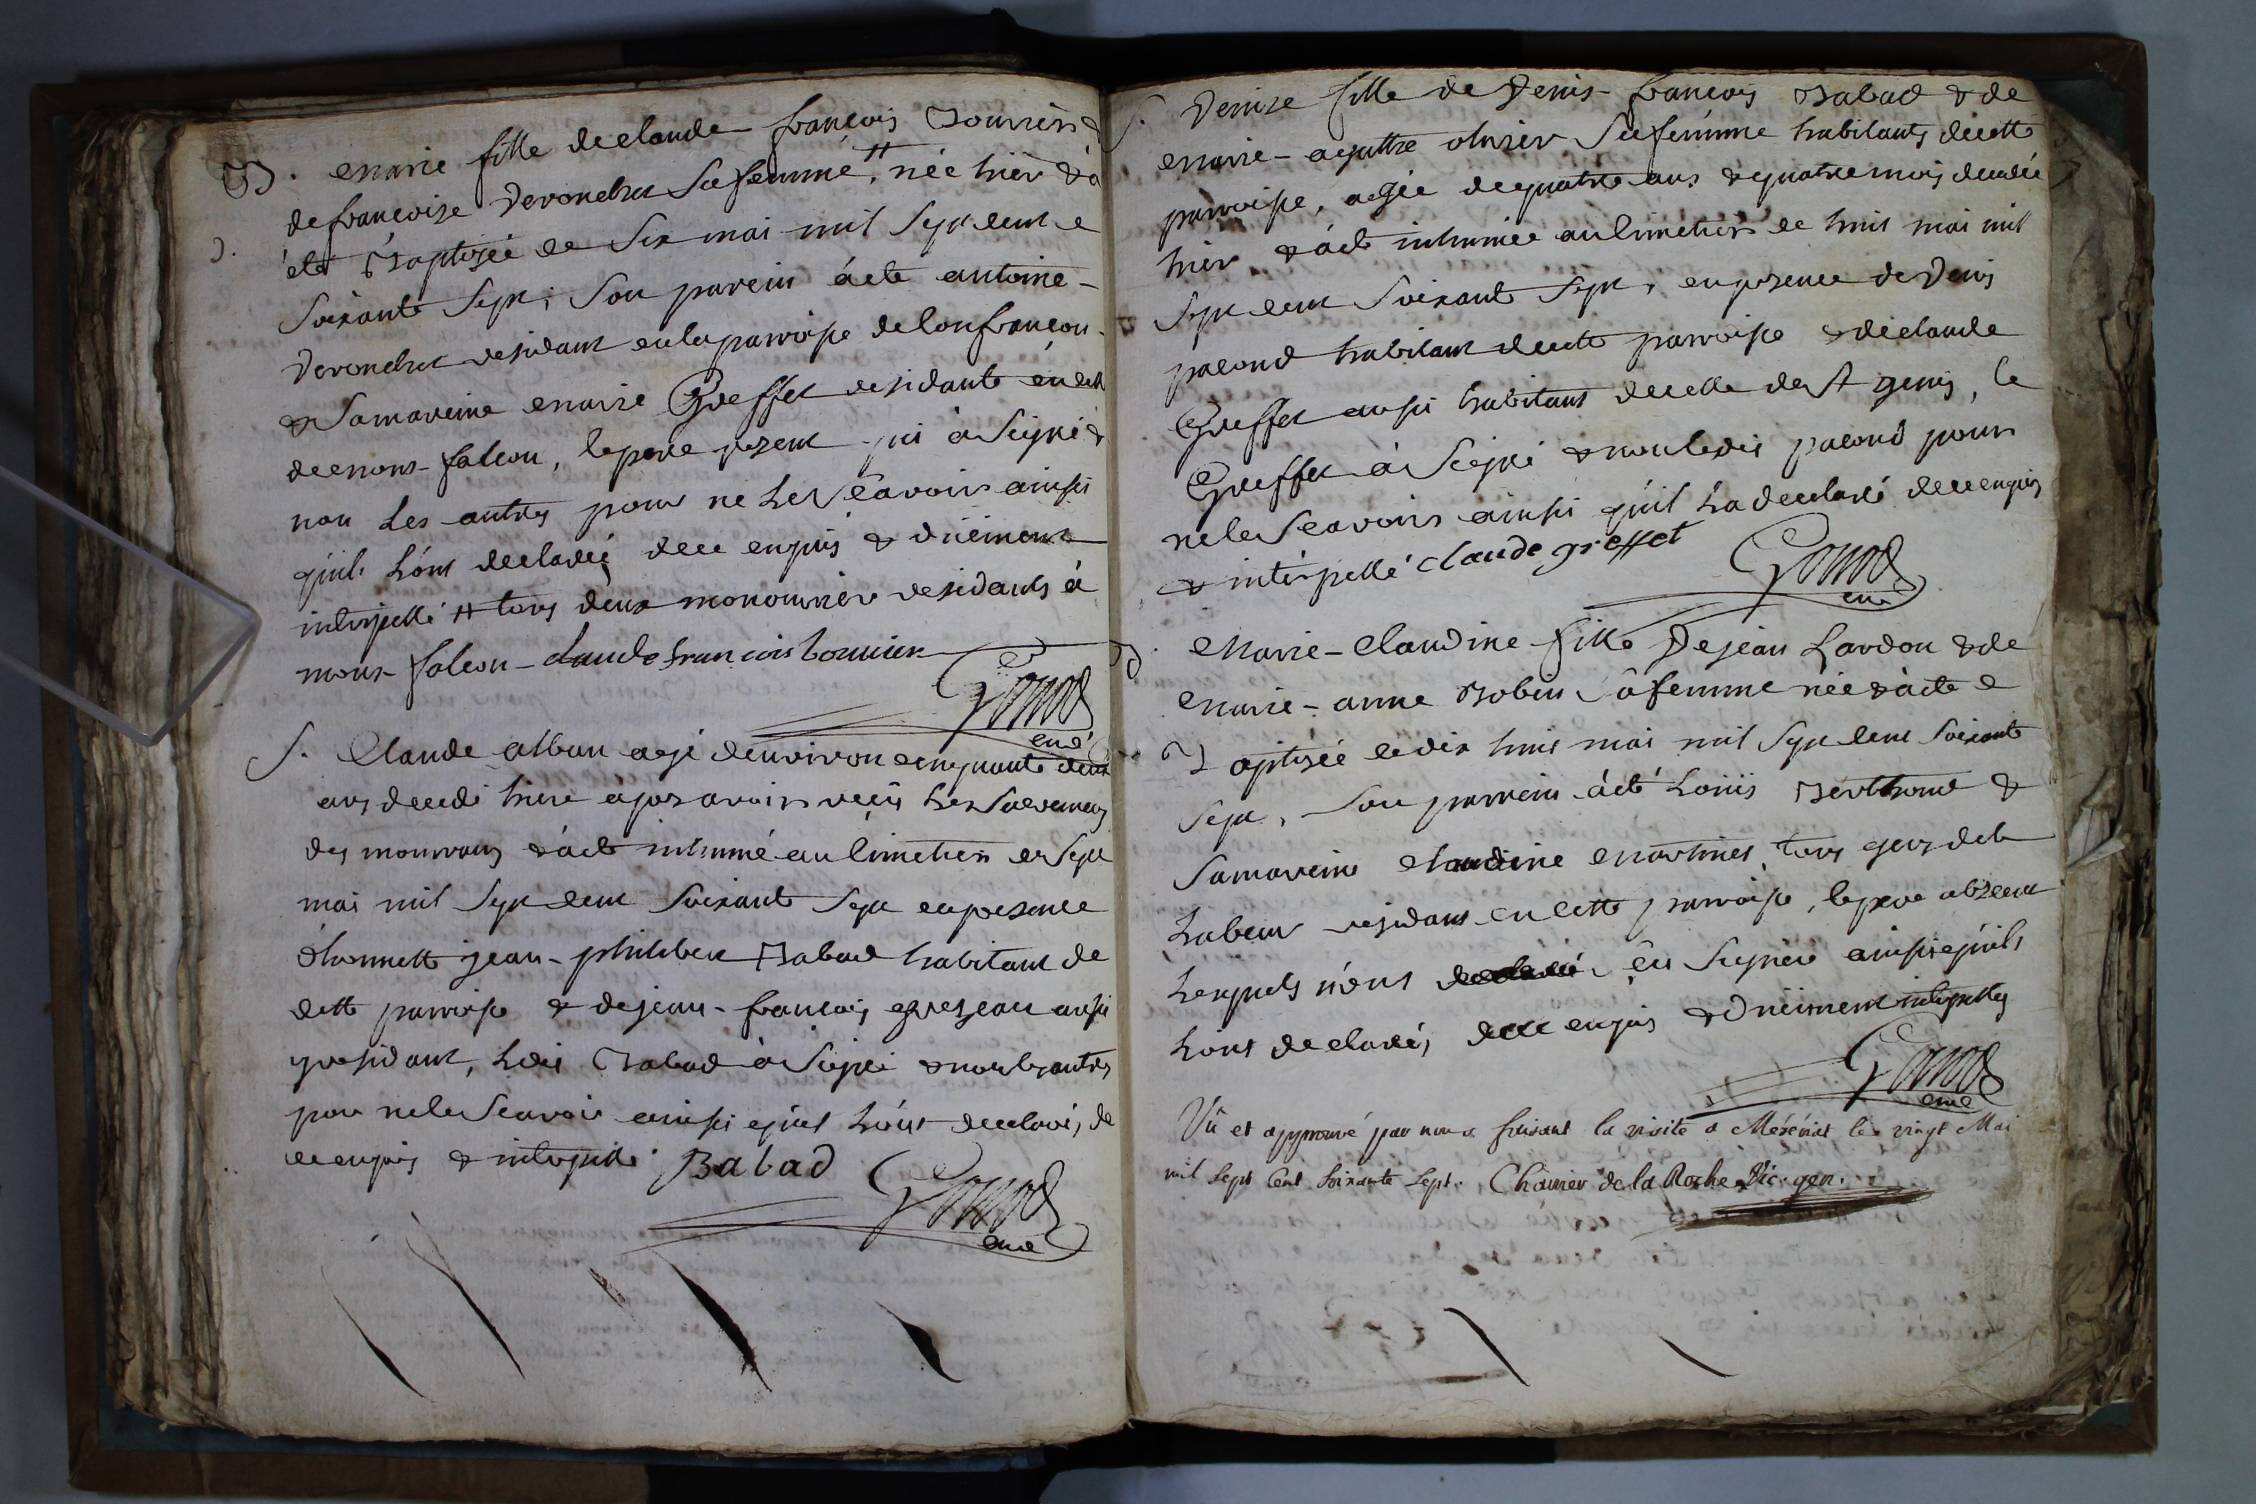 B. marie fille de claude françois Bouvier &
de françoise Deronchet sa femme, # née hier & a
été Baptisée le Six mai mil Sept cent
Soixante Sept; Son parein a été antoine
Deronchet residant en la paroisse de Confrançon
& Samareine marie Greffet residante en celle
de mons-falcon, le pere present qui a Signé &
non Les autres pour ne Le Sçavoir ainsi
quils Lont declaré de ce enquis & duëment
interpellé # tous deux monouvrier residants à
mons-falcon claude francois bouvier
Gonod
curé
S. Claude alban agé denviron cinquante deux
ans decedé hier apres avoir reçû Les Sacremens
des mourans & a été inhumé au Cimetier le Sept
mai mil Sept cent Soixante Sept en presence
d'honnette jean-philibert Babad habitant de
cette paroisse & de jean-françois aussi
y residant, Ledit Babad a Signé & non les autres
pour ne le Scavoir ainsi quil Lont declaré, de
ce enquis & interpellé Babad
Gonod
curé
S. Denise fille de Denis-françois Babad & de
marie-agathe olivier Sa femme habitants de cette
paroisse, agée de quatre ans & quatre mois decedée
hier & a été inhumée au Cimetier le huit mai mil
Sept cent Soixante Sept, en presence de Denis
pacoud habitant de cette paroisse & de claude
Greffet aussi habitant de celle de St genis, le
Greffet a Signé & non ledit pacoud pour
ne le Scavoir ainsi quil La declaré de ce enquis
& interpellé claude greffet
Gonod
curé
B. Marie-Claudine fille De jean Lardon & de
marie-anne Bobin Sa femme née & a été
Baptisée le dix huit mai mil Sept cent Soixante
Sept, Son parrein a été Loüis Berthoud &
Samareine Claudine tous gens de
Labeur residans en cette paroisse, le pere absent
Lesquels n'ont Signéé ainsi quils
Lont declaré, de ce enquis & Duëment interpellés
Gonod
curé
Vû et approuvé par nous faisant la visite a Mézériat le vingt Mai
mil Sept Cent Soixante Sept. Charrier de la Roche Vic. gen.